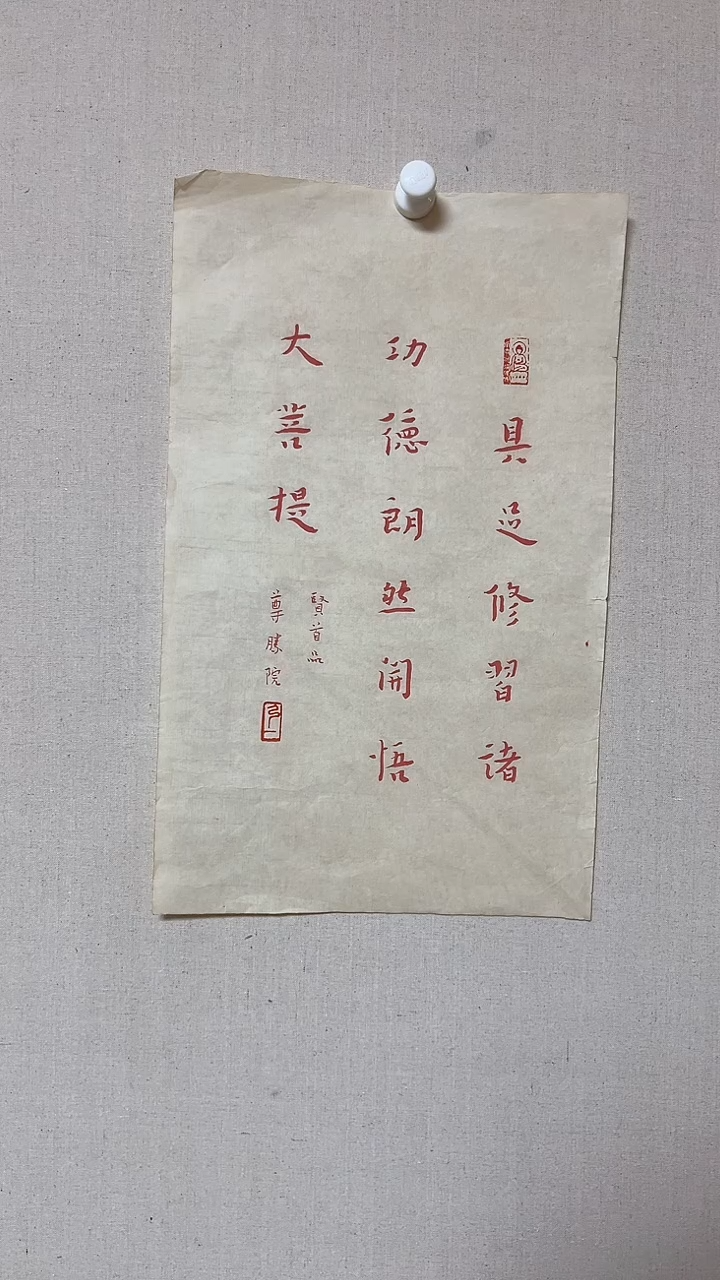 具足修習諸
功德朗然開悟
大菩提
賢首品
尊勝院